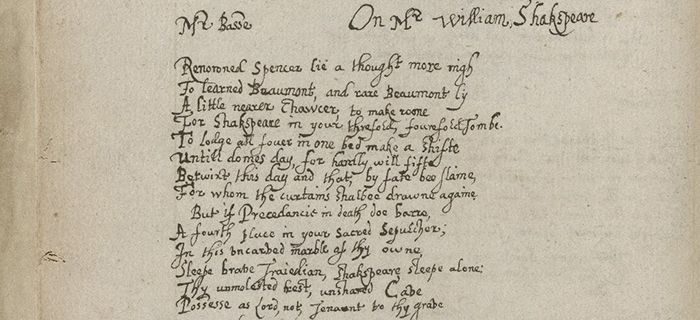 Mr Basse
On Mr William, Shakspeare
Renowned Spencer lie a thought more nigh
To learned Beaumont, and rare Beaumont ly
A little nearer Chawcer, to make roome
For Shakspeare in your threfold, fowrefold Tombe.
To lodge all fower in one bed make a shifte
Untill domes day, for hardly will fifte
Betwixt this day and that, by fate bee slaine,
For whom the curtains shalbee drawne againe
But if Precedencie in death doe barre,
A fourth place in your Sacred Sepulcher;
In this uncarved marble of thy owne
Sleepe brave Tragedian, Shakspeare sleepe alone:
Thy unmolested rest, unshared Cave
Possesse as Lord not, Tenaunt to thy grave